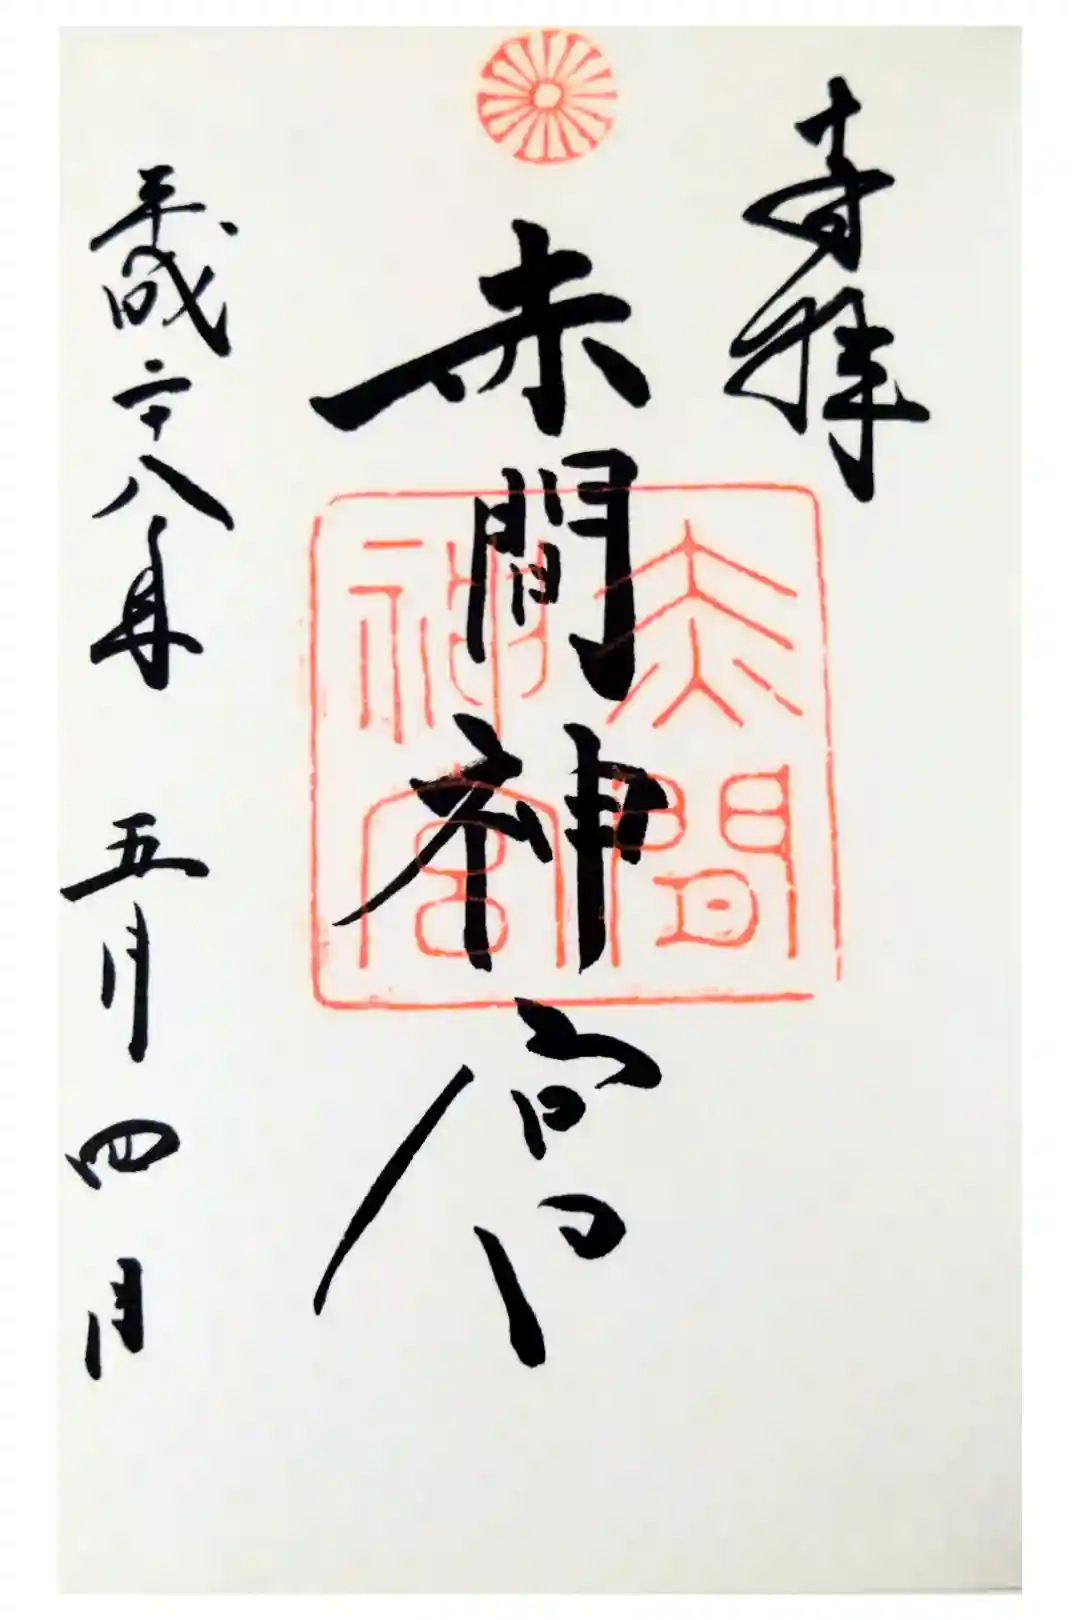 奉拝
赤間神宮
赤間
神宮
平成二十八年 五月四日